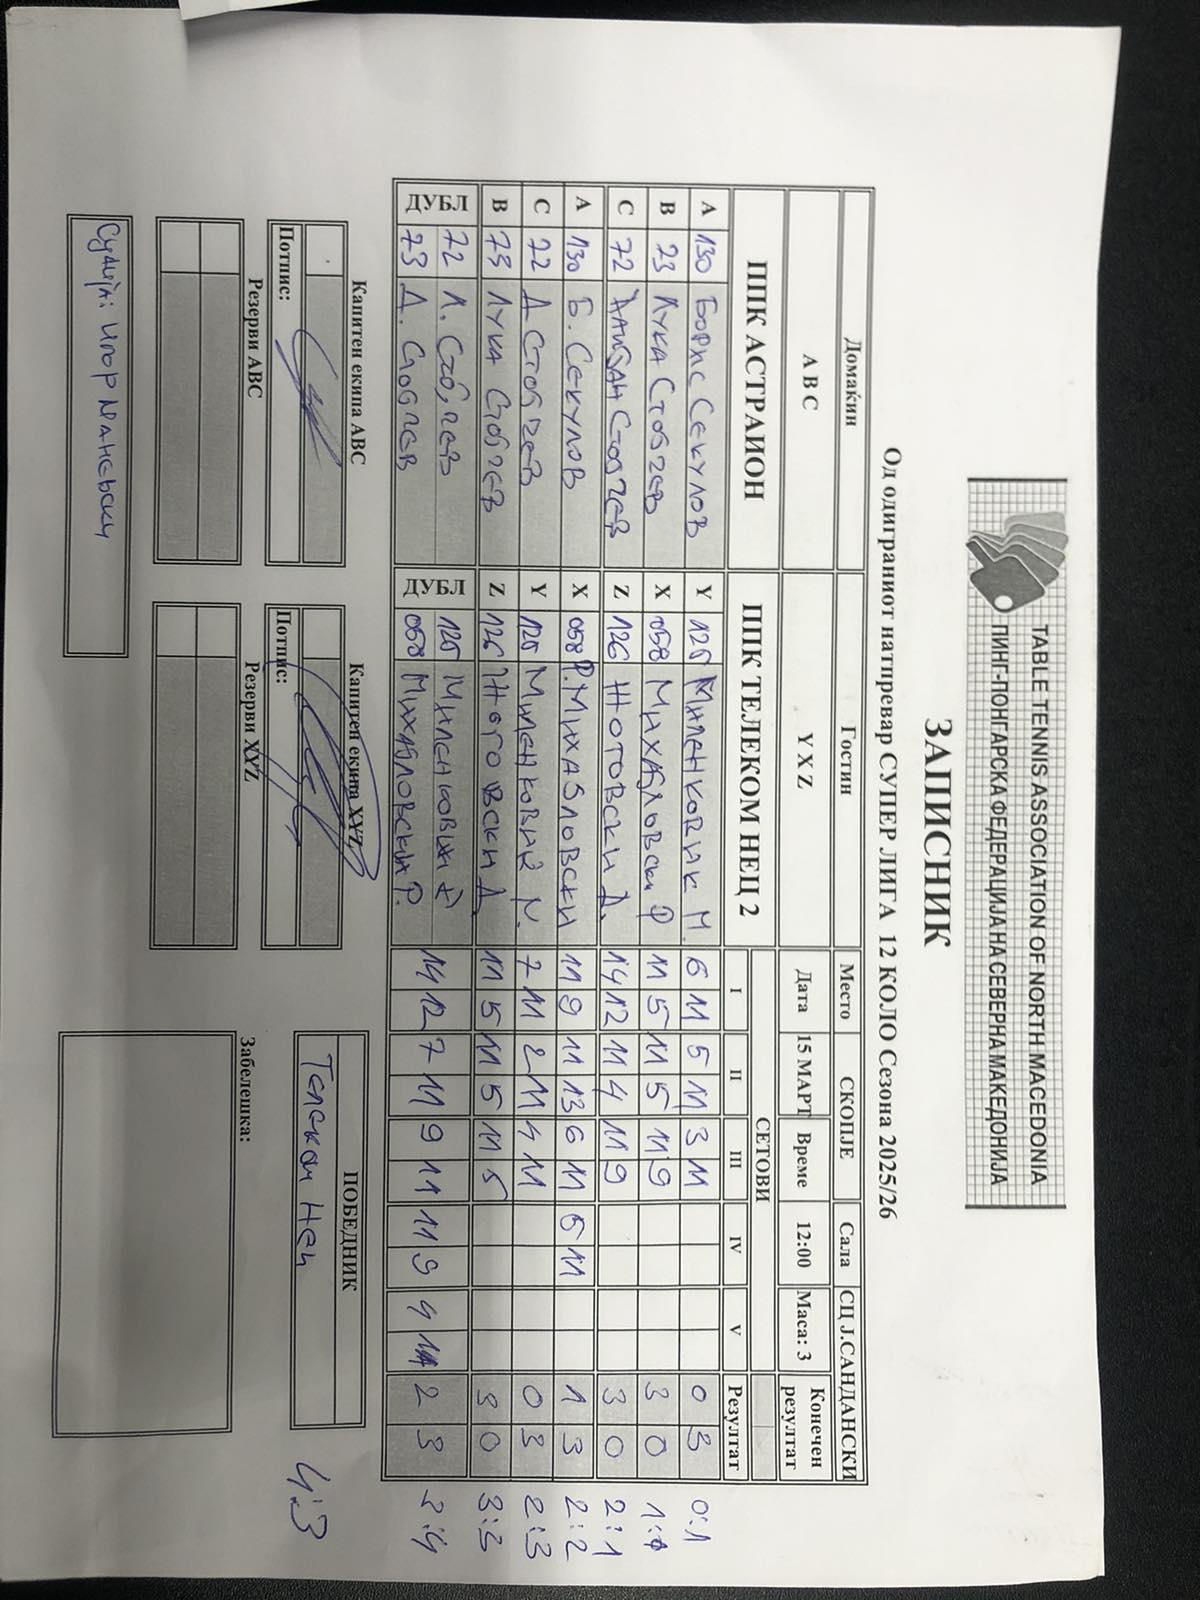 TABLE TENNIS ASSOCIATION OF NORTH MACEDONIA
ПИНГ-ПОНГАРСКА ФЕДЕРАЦИЈА НА СЕВЕРНА МАКЕДОНИЈА
ЗАПИСНИК
Од одиграниот натпревар СУПЕР ЛИГА 12 КОЛО Сезона 2025/26
Домаќин Гостин Место СКОПЈЕ Сала СЦ Ј.САНДАНСКИ
A B C Y X Z Дата 15 МАРТ Време 12:00 Маса: 3 Конечен резултат
ППК АСТРАИОН ППК ТЕЛЕКОМ НЕЦ 2 СЕТОВИ
I II III IV V Резултат
A 130 Борис Секулов Y 125 Миленковиќ М. 6 11 5 11 3 11 0 3 0:1
B 23 Лука Стојчев X 058 Михајловски Р 11 5 11 5 11 9 3 0
C 72 Дамјан Стојчев Z 126 Жотовски Д. 14 12 11 4 11 9 3 0 2:1
A 130 Б. Секулов X 058 Р. Михајловски 11 9 11 13 6 11 5 11 1 3 2:2
C 72 Д Стојчев Y 125 Миленковиќ М. 7 11 2 11 4 11 0 3 2:3
B 73 Лука Стојчев Z 126 Жотовски Д 11 5 11 5 11 5 3 0 3:3
ДУБЛ 72 Л. Стојчев ДУБЛ 125 Миленковиќ
73 Д. Стојчев 058 Михајловски Р. 14 12 7 11 9 11 11 9 4 11 2 3 3:4
Капитен екипа ABC Капитен екипа XYZ ПОБЕДНИК
Потпис: Потпис: Телеком Нец 4:3
Резерви ABC Резерви XYZ Забелешка:
Судија: Игор Маневски